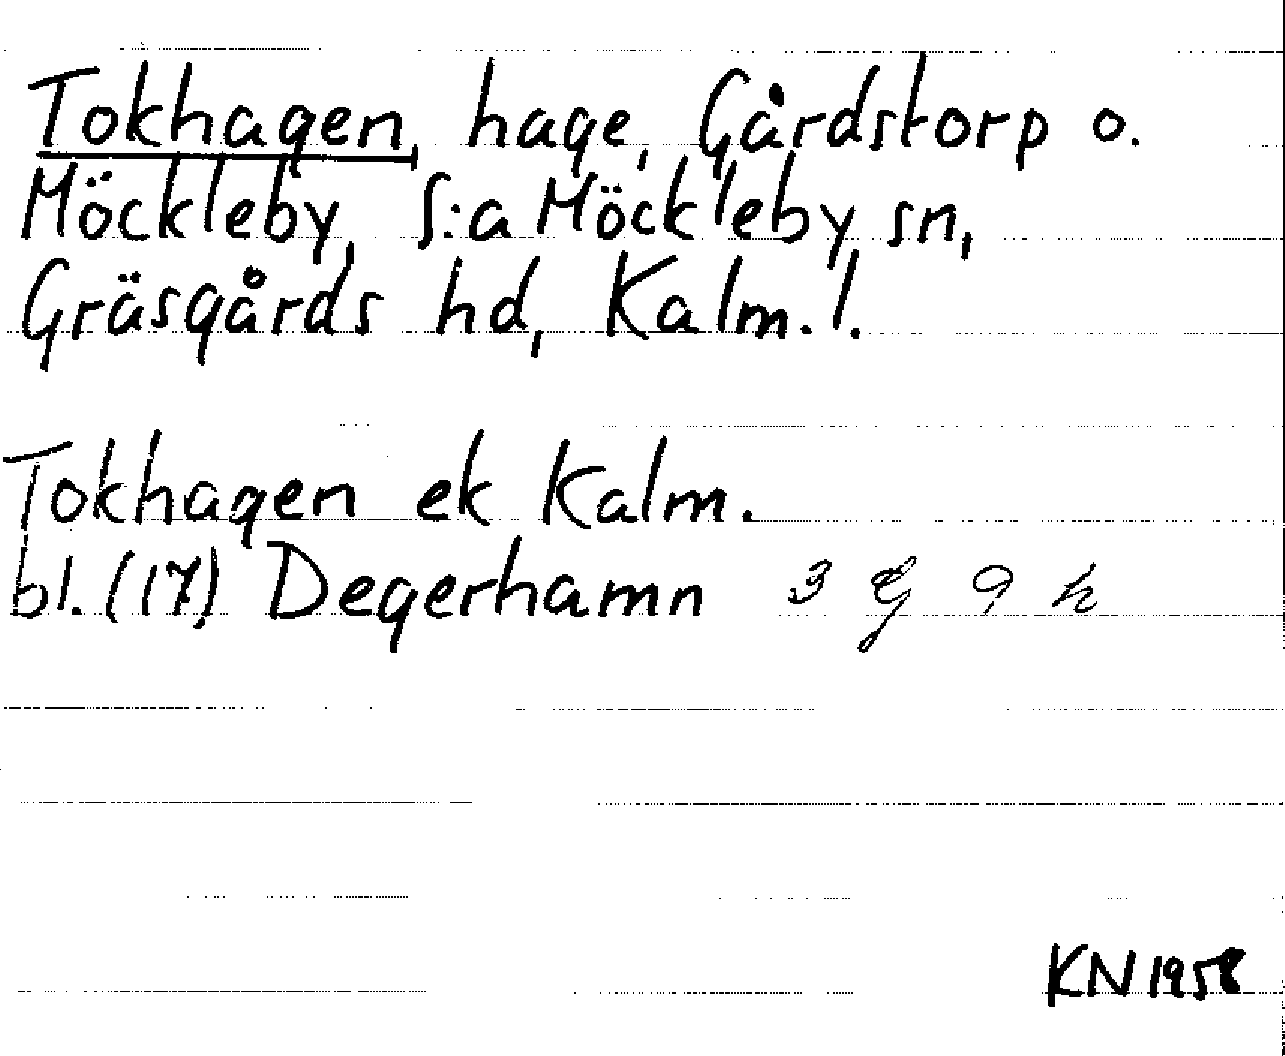 Tokhagen, hage, Gårdstorp o.
Möckleby, S:a Möckleby sn,
Gräsgårds hd, Kalm. l.
Tokhagen ek Kalm.
bl. (17) Degerhamn 3 G 9 h
KN 1958